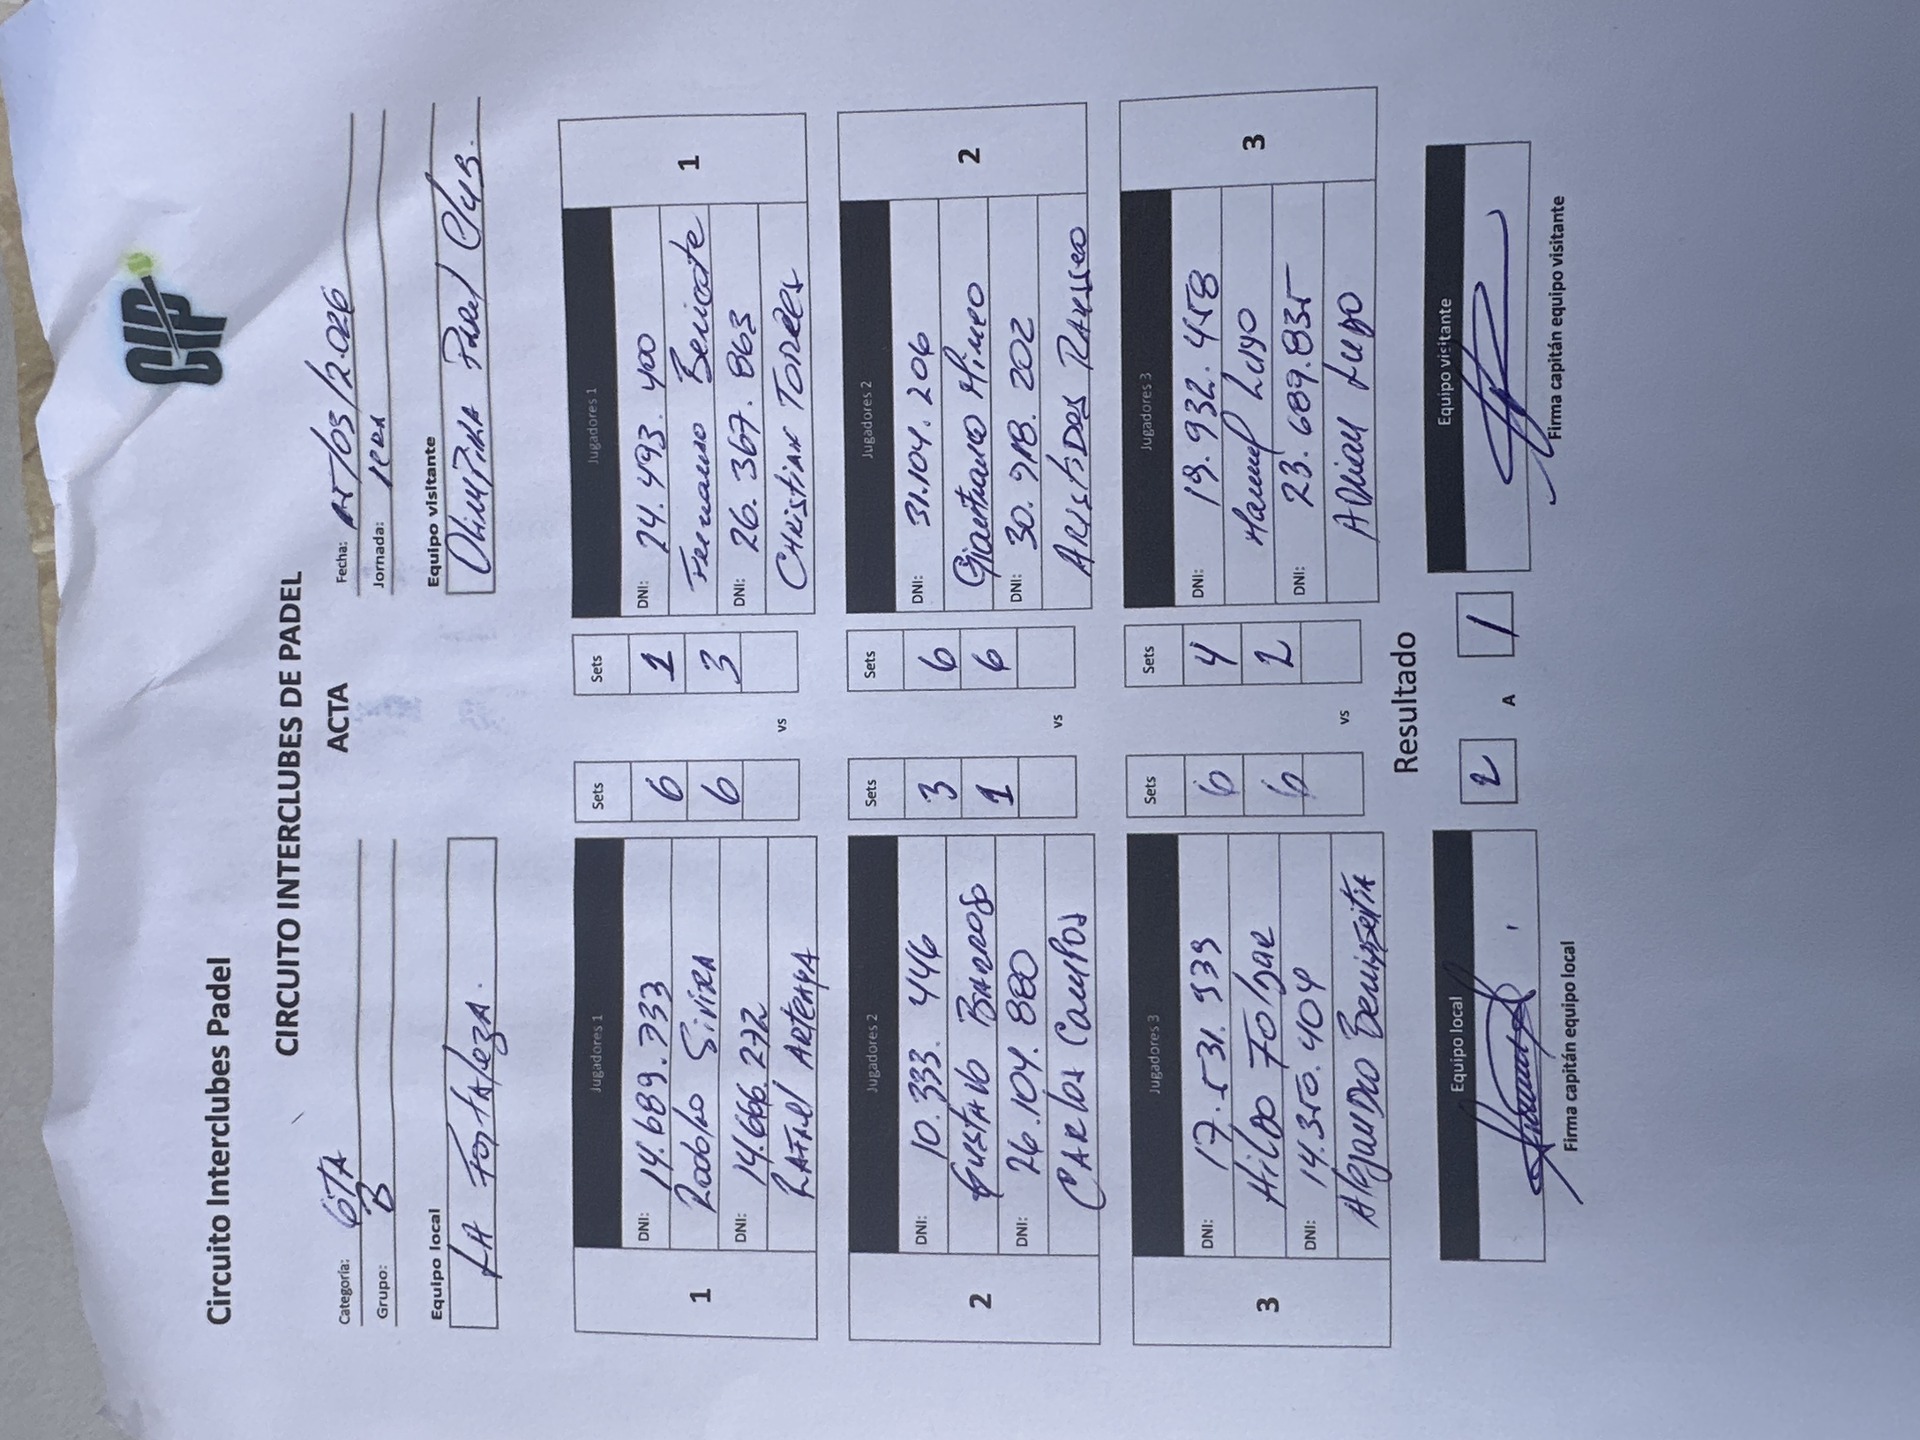 Circuito Interclubes Padel
CIP
CIRCUITO INTERCLUBES DE PADEL
ACTA
Categoría: 6TA
Grupo: B
Fecha: /03/2.026
Jornada: 1ERA
Equipo local
LA FortAlezA.
Equipo visitante
OlimPikA Padel Club.
1
Jugadores 1
DNI: 14.689.733
Rodolfo SiviRA
DNI: 14.666.272
RAfAel ARTEAgA
Sets
6
6
vs
Sets
1
3
Jugadores 1
DNI: 24.493.400
Fernando
DNI: 26.367.863
CHRistiAN TORRES
1
2
Jugadores 2
DNI: 10.333.446
GustAvo BARROSO
DNI: 26.104.880
CARlos CAMPOS
Sets
3
1
vs
Sets
6
6
Jugadores 2
DNI: 31.104.206
Gianfranco Mineo
DNI: 30.918.202
ARistiDes RAusseo
2
3
Jugadores 3
DNI: 17.531.939
HilDO FOlgAR
DNI: 14.350.404
AlejanDRO
Sets
6
6
vs
Sets
4
2
Jugadores 3
DNI: 19.932.458
Manuel Lugo
DNI: 23.689.835
ADrian Lugo
3
Resultado
Equipo local
2
A
1
Equipo visitante
Firma capitán equipo local
Firma capitán equipo visitante